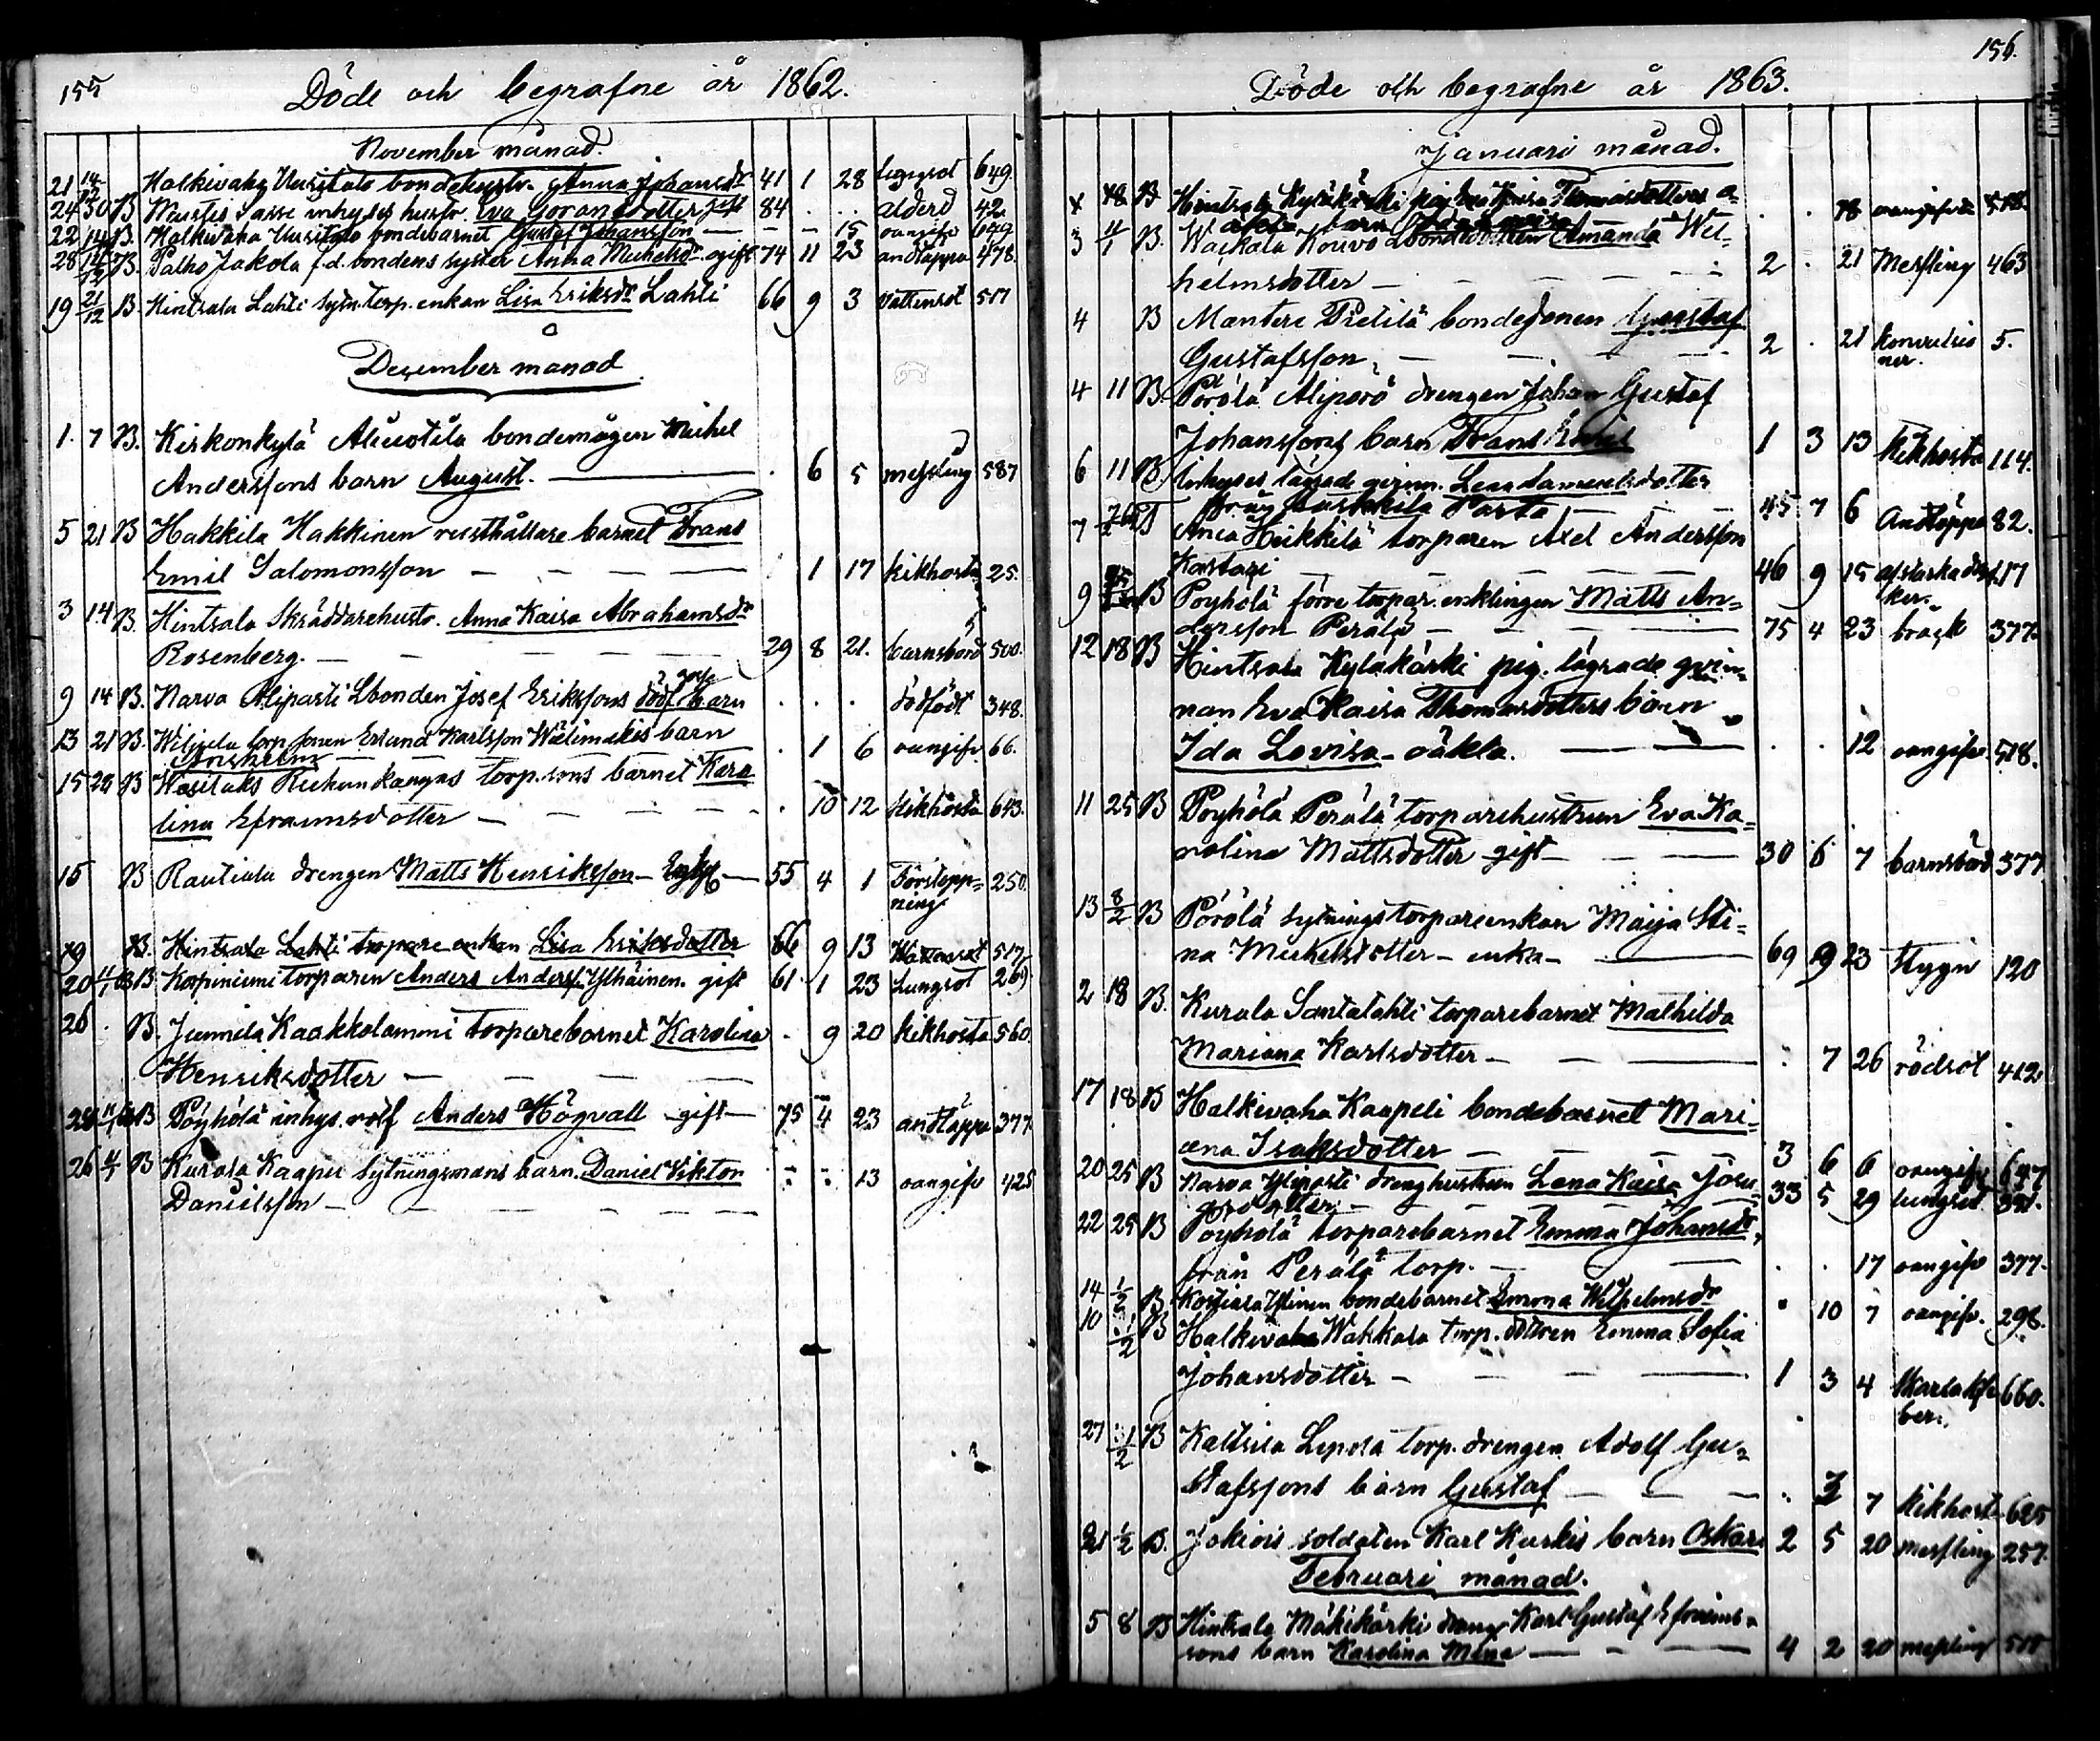 155
Döde och begrafne år 1862.
November månad.
21 14/12 Halkivaha Uusitalo bondehustr. Anna Johansdr 41 1 28 649.
24 30 B Sasse inhyses hustr. Eva Göransdotter gift 84 . . ålderd 42.
22 14 B. Halkivaha Uusitalo bondebarnet Gustaf Johansson — — — 15 oangifv 649
28 14/12 B. Palho Jakola f.d. bondens syster Anna Michelsdr ogift 74 11 23 andtäppa 478.
19 21/12 B Hintsala Lahti sytn. torp. enkan Lisa Eriksdr Lahti 66 9 3 vattensot 517
December månad
1. 7 B. Kirkonkylä bondemågen Michel
Anderssons barn August. — . 6 5 messling 587
5 21 B Hakkila Hakkinen rusthållare barnet Frans
Emil Salomonsson — — — — 1 17 kikhosta 25.
3 14 B. Hintsala Skräddarehustr. Anna Kaisa Abrahamsdr
Rosenberg. — — — — 29 8 21. barnsbörd 500.
9 14 B. Narva Aliparti Lbonden Josef Erikssons dödf. barn . . . dödfödt 348.
13 21 B. torp. sonen Erland Karlsson barn
— — — . 1 6 oangifv. 66.
15 28 B torp. sons barnet Karo
lina Efraimsdotter — — — — . 10 12 kikhosta 643.
15 B Rautiala drengen Matts Henriksson — — 55 4 1 Förstopp=
ning 250.
19 B. Hintsala Lahti torpare enkan Lisa Eriksdotter 66 9 13 Vattensot 517
20 11/1 63 B Korpiniemi torparen Anders Anderss. Ylhäinen. gift 61. 1 23 Lungsot 269
26 . B. Junnila Kaakkolammi torparebarnet Karolina . 9 20 kikhosta 560.
Henriksdotter — — — —
28 11/1 63 B Pöyhölä inhys. rotf Anders Högvall — gift — 75 4 23 andtäppa 377.
26 11/1 B Kurala Kaapu sytningsmans barn Daniel Viktor 13 oangifv 425
Danielsson — — — — — —
156.
Döde och begrafne år 1863.
Januari månad.
18 B Hintsala Kyläkärki Kaisa Thomasdotters o=
äkta barn . . 18 oangifven 518.
3 11/1 B. Waikala Kouvo Lbondedottern Amanda Wil=
helmsdotter — — — — 2 . 21 Messling 463
4 B Mantere Prelilä bondesonen Gustaf
Gustafsson, — — — — 2 . 21 Konvulsio
ner. 5.
4 11 B. Pörölä Alipörö drengen Johan Gustaf
Johanssons barn Frans Emil 1 3 13 Kikhosta 114.
6 11 B. Inhyses lägrade qvinn. Lena Samuelsdotter
från Parta — — — 45 7 6 Andtäppa 82.
7 B Ania Heikkilä torparen Axel Andersson
Kastari — — — — 46 9 15 117
9 B Pöyhölä förre torpar. enklingen Matts An=
dersson Perälä — — — — 75 4 23 bråck 377.
12 18 B Hintsala Kyläkärki pig. lägrade qvin=
nan Eva Kaisa Thomasdotters barn
Ida Lovisa — oäkta. — — . . 12 oangifv. 518.
11 25 B Pöyhölä Perälä torparehustrun Eva Ka=
rolina Mattsdotter gift — — — 30 6 7 barnsbörd 377
13 8/2 B Pörölä sytningstorpareenkan Maija Sti=
na Michelsdotter — enka — — 69 9 23 Stygn 120
2 18 B. Kurala Santalahti torparebarnet Mathilda
Mariana Karlsdotter — — — . 7 26 rödsot 412.
17 18 B Halkivaha Kaapeli bondebarnet Mari=
ana Isaksdotter — — — 3 6 6 oangifv. 647
20 25 B Narva Yliparti drenghustrun Lena Kaisa Josefs=
dotter — — — — 33 5 29 lungsot
22 25 B Pöyhölä torparebarnet Emma Johansdr,
från Perälä torp. — — — . . 17 oangifv 377.
14 1/2 B. bondebarnet Emma Wilhelmsdr . 10 7 oangifv. 298.
10 1/2 B Halkivaha Wakkala torp. dottern Emma Sofia
Johansdotter — — — — 1 3 4 Skarlakfe
ber. 660.
27 1/2 B Kaltsila torp. drengen Adolf Gu=
stafssons barn Gustaf — — — . 3 7 kikhosta 625
21 1/2 B. Jokiois soldaten Karl Kurkis barn Oskar 2 5 20 messling 257.
Februari månad.
5 8 B Hintsala Mäkikärki dreng Karl Gustaf Efraims=
sons barn Karolina Mina — — — 4 2 20 messling